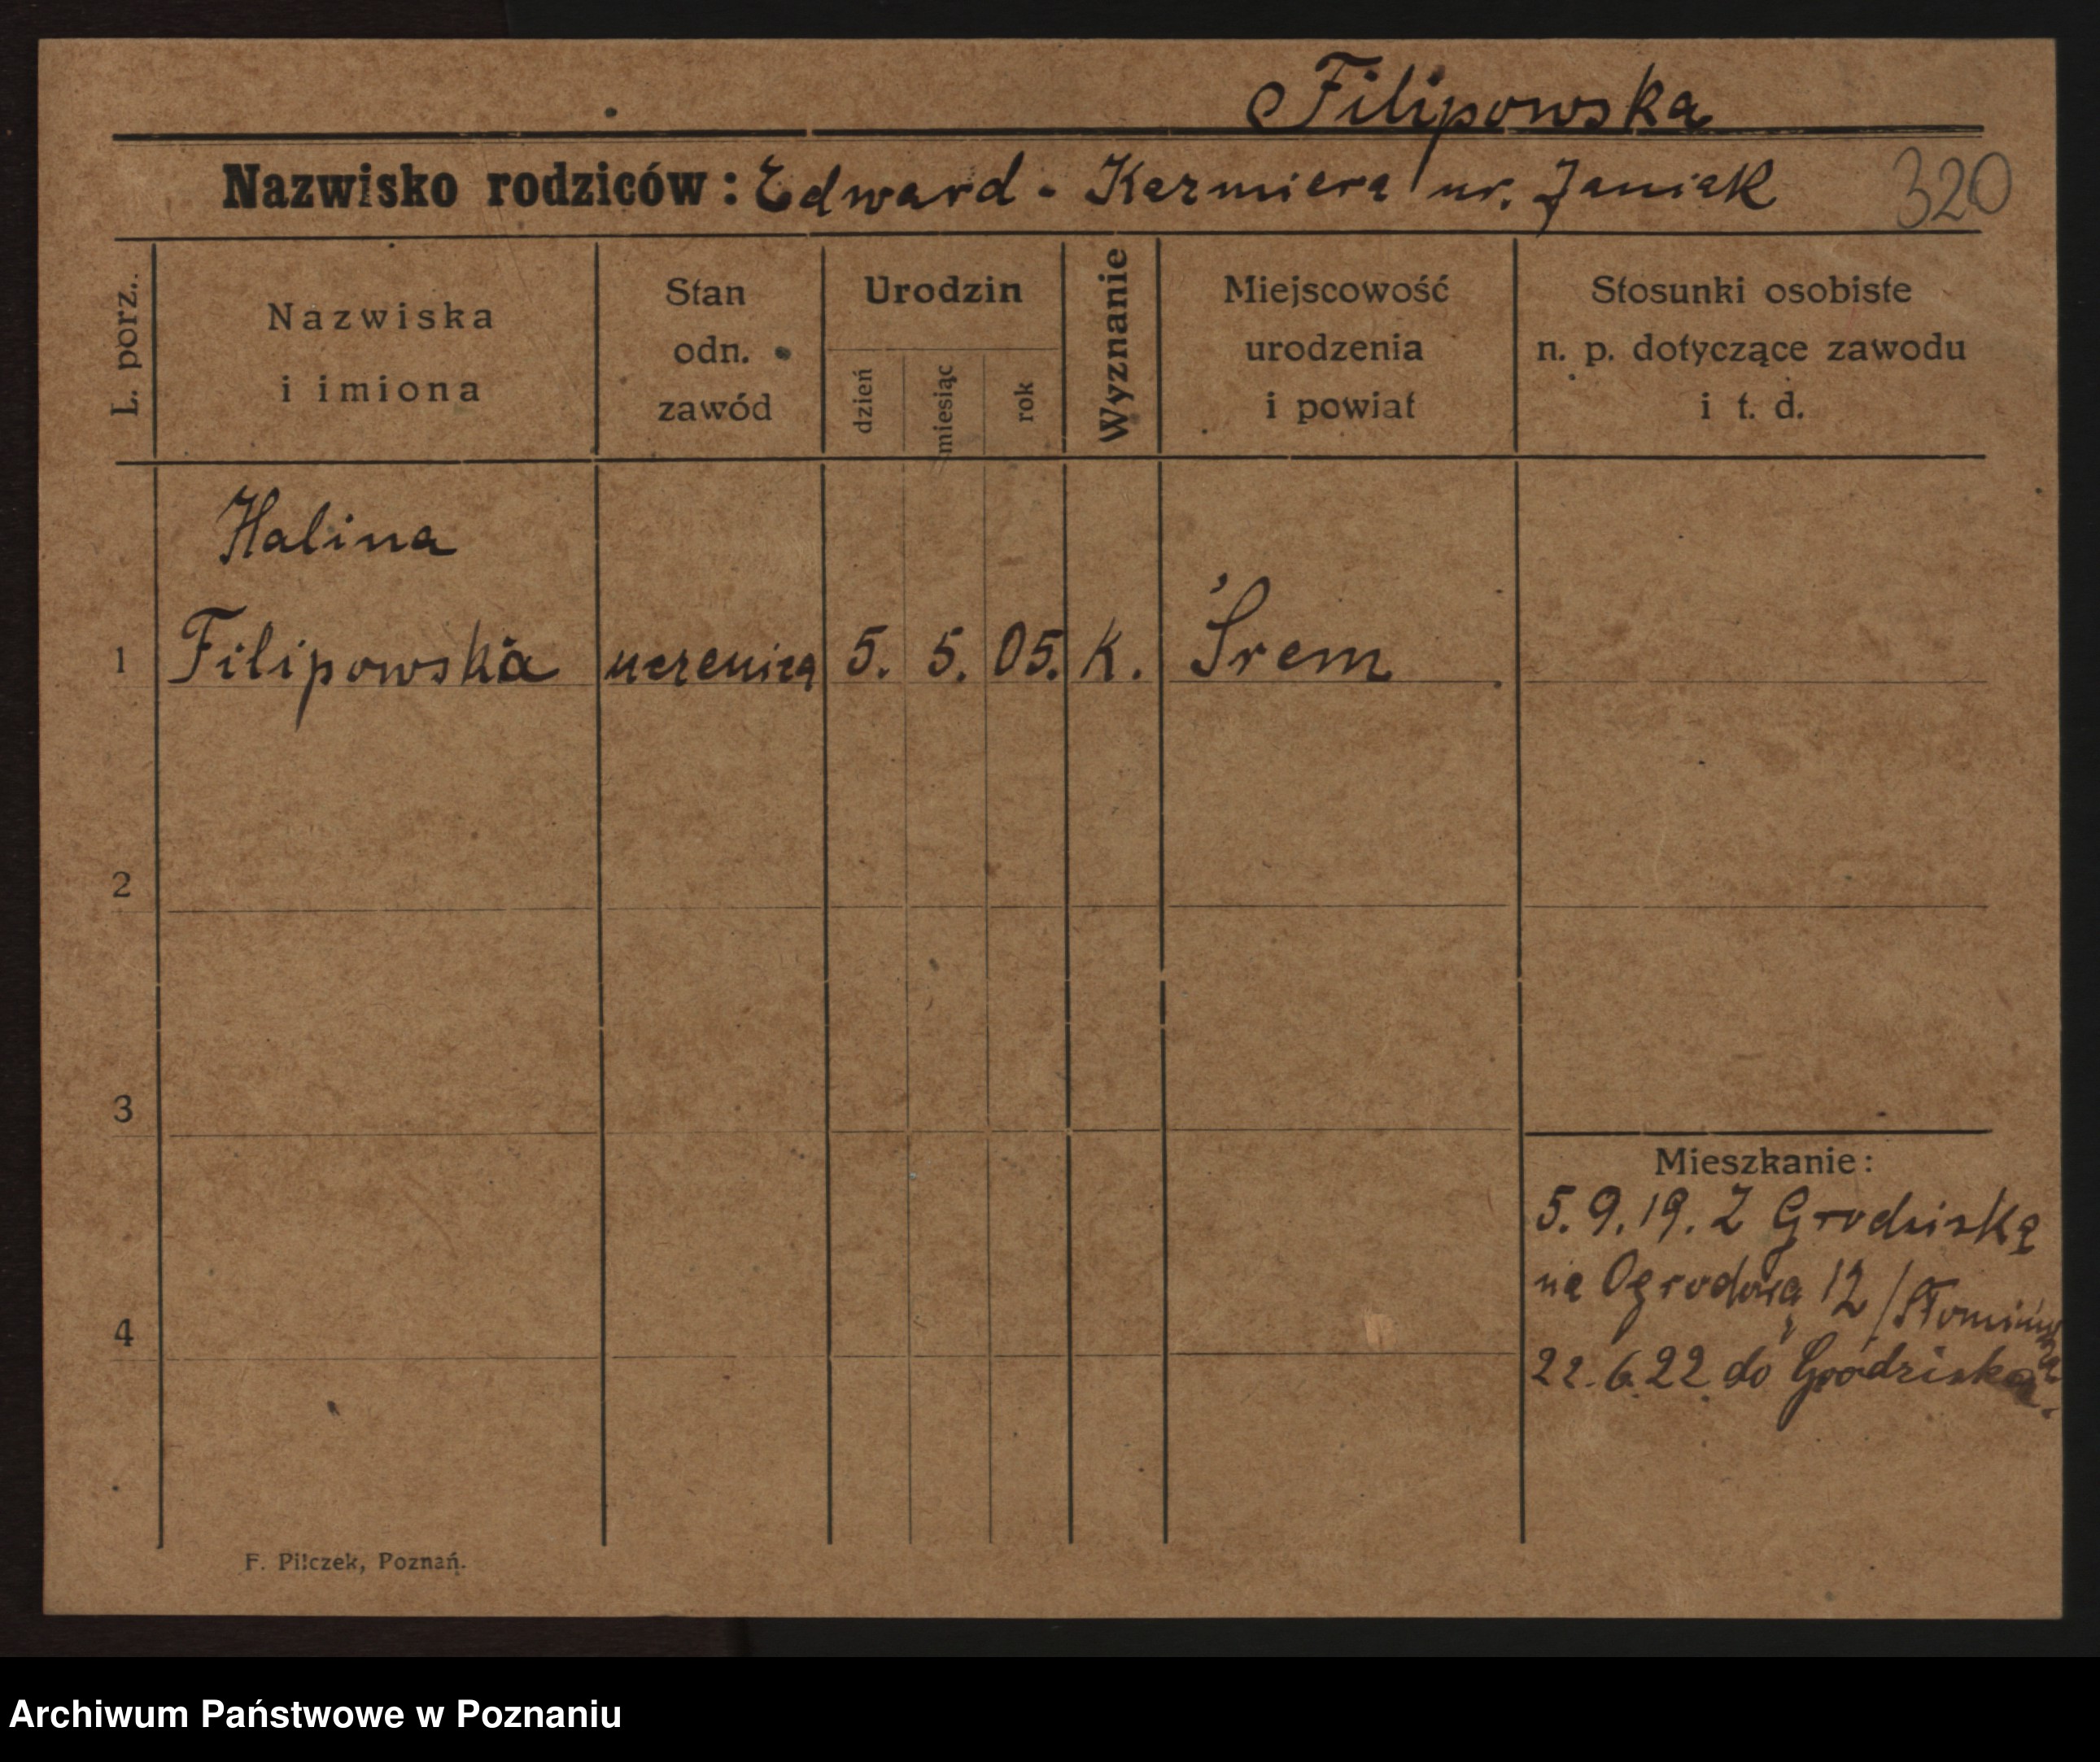 Filipowska
Nazwisko rodziców: Edward - Kazmiera ur. Janiak 320
L. porz.
Nazwiska
i imiona
Stan
odn.
zawód
Urodzin
dzień
miesiąc
rok
Wyznanie
Miejscowość
urodzenia
i powiat
Stosunki osobiste
n. p. dotyczące zawodu
i t. d.
Halina
1 Filipowska uczenica 5. 5. 05. K. Śrem
2
3
4
Mieszkanie:
5.9.19. Z Grodziska
na Ogrodową 12 /
22.6.22. do Grodziska.
F. Pilczek, Poznań.
Archiwum Państwowe w Poznaniu